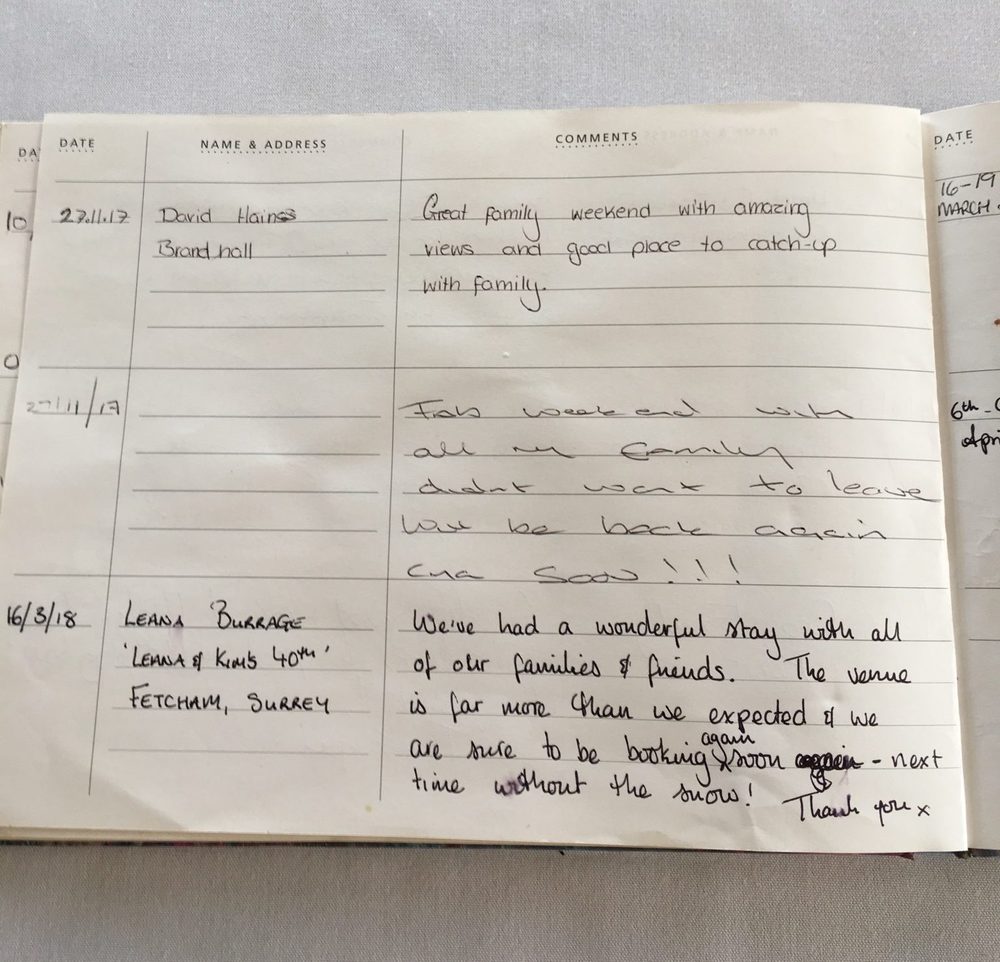 DATE NAME & ADDRESS COMMENTS
27.11.17 David Haines Great family weekend with amazing
Brandhall views and good place to catch-up
with family.
27/11/17 Fab weekend with
all my family
didnt want to leave
Will be back again
soon!!!
16/3/18 LEANA BURRAGE We've had a wonderful stay with all
'LEANA & KIM'S 40TH' of our families & friends. The venue
FETCHAM, SURREY is far more than we expected & we
are sure to be booking again soon - next
time without the snow!
Thank you x
DA
10
0
DATE
16-19
MARCH
6th -
Apri